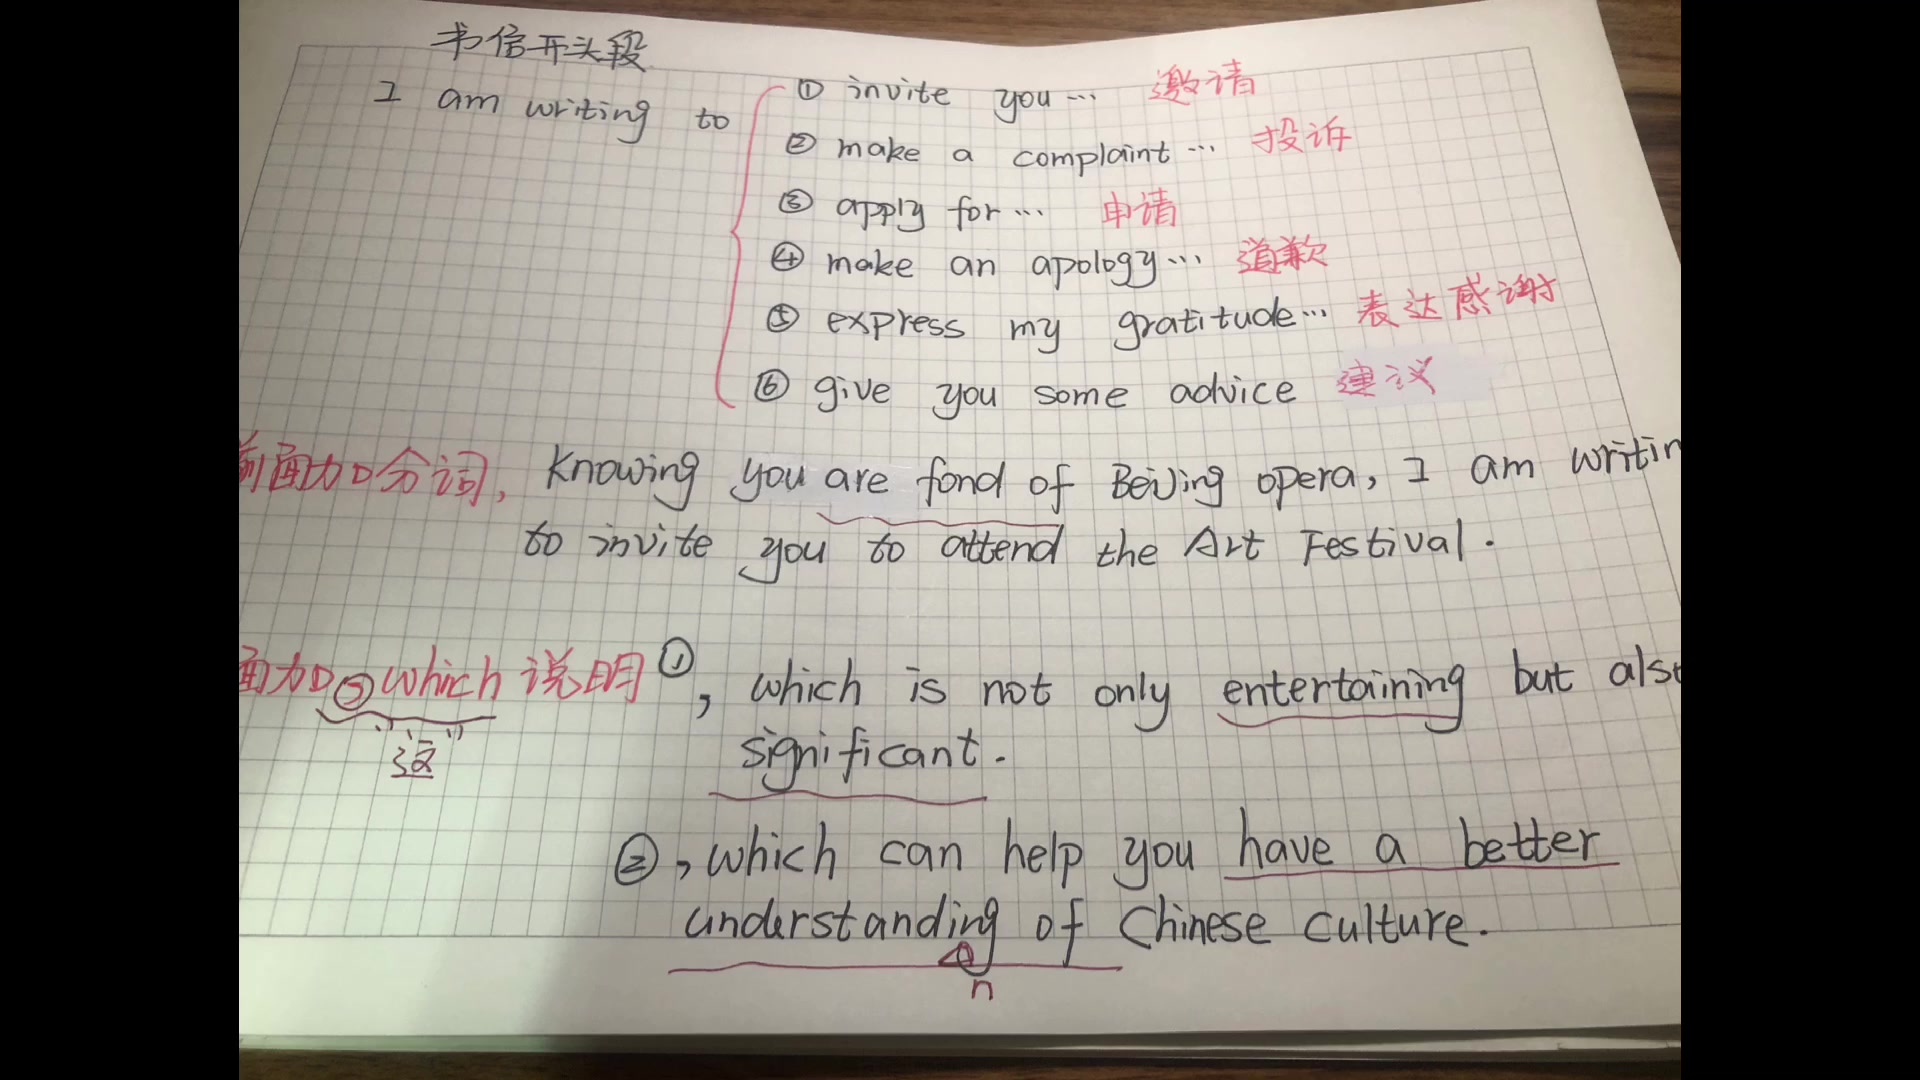 书信开头段
I am writing to
① invite you… 邀请
② make a complaint… 投诉
③ apply for… 申请
④ make an apology… 道歉
⑤ express my gratitude… 表达感谢
⑥ give you some advice 建议
前面加分词, Knowing you are fond of Beijing opera, I am writin
to invite you to attend the Art Festival.
面加⊙which说明 ①, which is not only entertaining but also
这
significant.
②, which can help you have a better
understanding of Chinese culture.
n